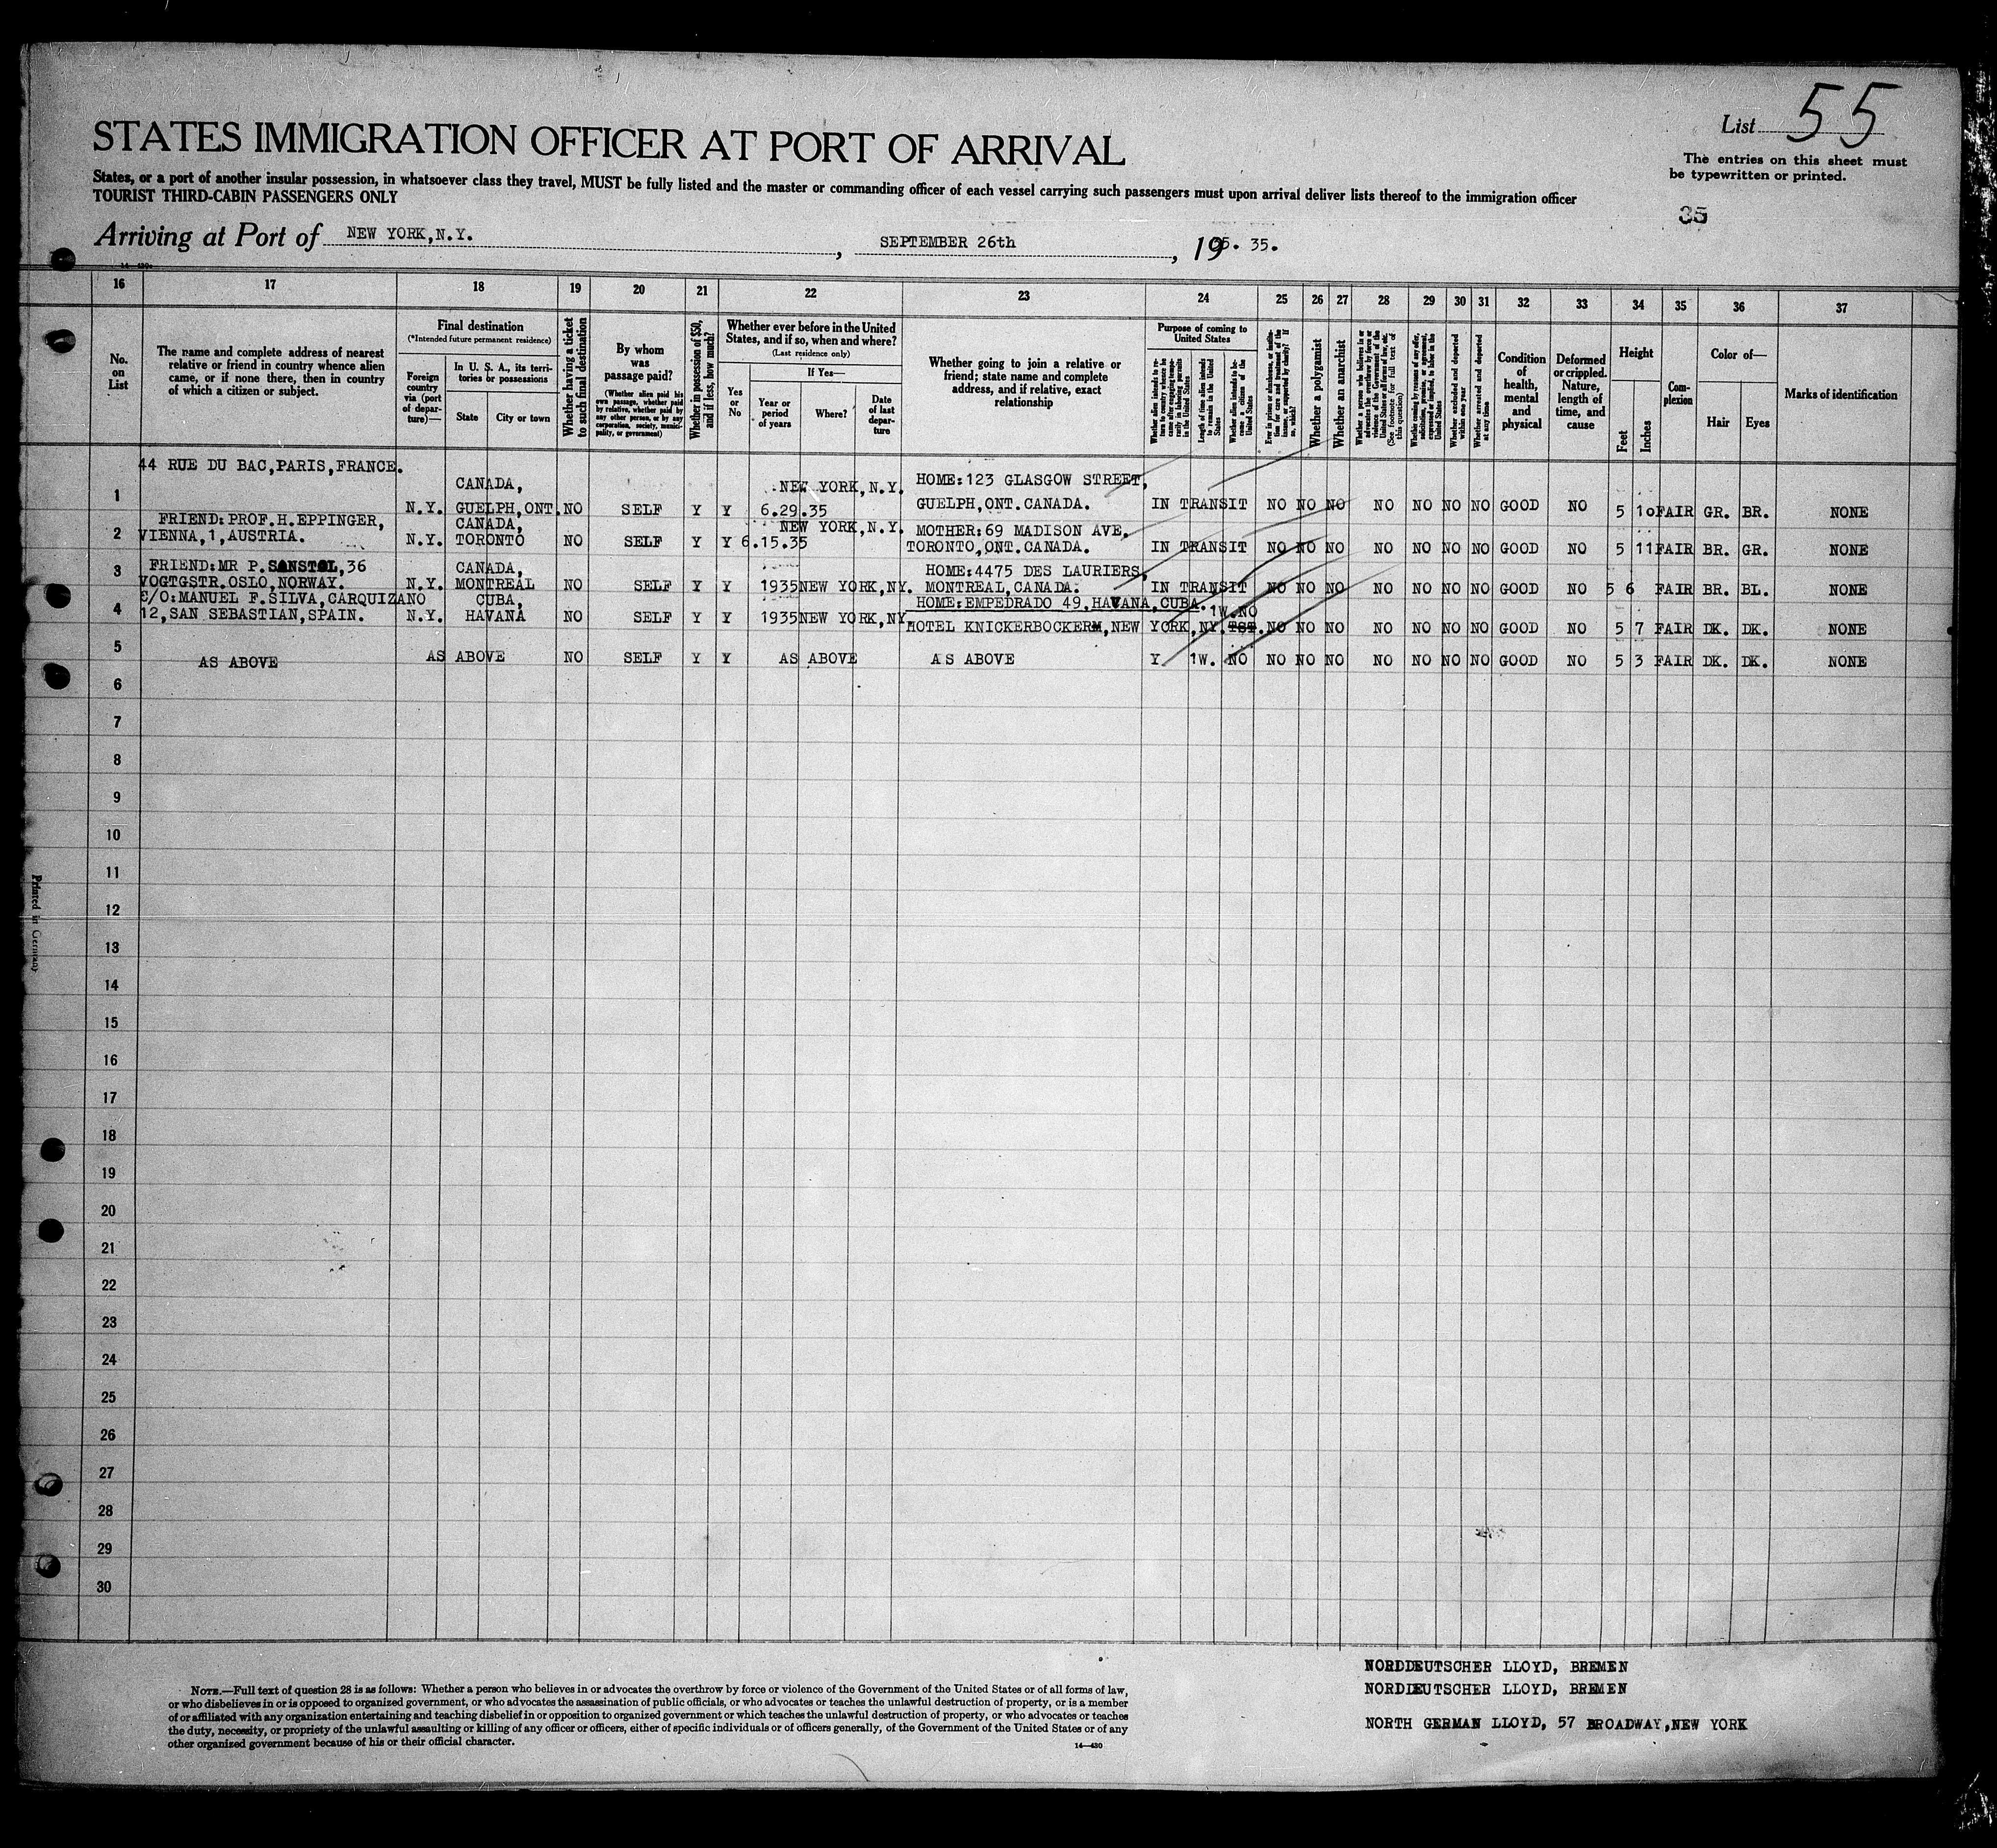 List 55
STATES IMMIGRATION OFFICER AT PORT OF ARRIVAL
The entries on this sheet must
be typewritten or printed.
States, or a port of another insular possession, in whatsoever class they travel, MUST be fully listed and the master or commanding officer of each vessel carrying such passengers must upon arrival deliver lists thereof to the immigration officer
TOURIST THIRD-CABIN PASSENGERS ONLY
35
Arriving at Port of NEW YORK,N.Y. , SEPTEMBER 26th , 19 35.
16 17 18 19 20 21 22 23 24 25 26 27 28 29 30 31 32 33 34 35 36 37
No. on List
The name and complete address of nearest relative or friend in country whence alien came, or if none there, then in country of which a citizen or subject.
Final destination
(*Intended future permanent residence)
Foreign country via (port of departure)—
In U. S. A., its territories or possessions
State
City or town
Whether having a ticket to such final destination
By whom was passage paid?
(Whether alien paid his own passage, whether paid by relative, whether paid by any other person, or by any corporation, society, municipality, or government)
Whether in possession of $50, and if less, how much?
Whether ever before in the United States, and if so, when and where?
(Last residence only)
Yes or No
If Yes—
Year or period of years
Where?
Date of last departure
Whether going to join a relative or friend; state name and complete address, and if relative, exact relationship
Purpose of coming to United States
Length of time alien intends to remain in the United States
Whether alien intends to become a citizen of the United States
Whether a polygamist
Whether an anarchist
Whether excluded and deported within one year
Whether arrested and deported at any time
Condition of health, mental and physical
Deformed or crippled. Nature, length of time, and cause
Height
Feet
Inches
Complexion
Color of—
Hair
Eyes
Marks of identification
44 RUE DU BAC,PARIS,FRANCE.
1 N.Y. CANADA, GUELPH,ONT. NO SELF Y Y 6.29.35 NEW YORK,N.Y. HOME:123 GLASGOW STREET, GUELPH,ONT.CANADA. IN TRANSIT NO NO NO NO NO NO NO GOOD NO 5 10 FAIR GR. BR. NONE
2 FRIEND:PROF.H.EPPINGER, VIENNA,1,AUSTRIA. N.Y. CANADA, TORONTO NO SELF Y Y 6.15.35 NEW YORK,N.Y. MOTHER:69 MADISON AVE. TORONTO,ONT.CANADA. IN TRANSIT NO NO NO NO NO NO NO GOOD NO 5 11 FAIR BR. GR. NONE
3 FRIEND:MR P.SANSTOL,36 VOGTGSTR.OSLO,NORWAY. N.Y. CANADA, MONTREAL NO SELF Y Y 1935 NEW YORK,NY. HOME:4475 DES LAURIERS, MONTREAL,CANADA. IN TRANSIT NO NO NO NO NO NO NO GOOD NO 5 6 FAIR BR. BL. NONE
4 C/O:MANUEL F.SILVA,CARQUIZANO 12,SAN SEBASTIAN,SPAIN. N.Y. CUBA, HAVANA NO SELF Y Y 1935 NEW YORK,NY. HOME:EMPEDRADO 49,HAVANA,CUBA. HOTEL KNICKERBOCKER,NEW YORK,NY. 1W.NO NO NO NO NO NO NO NO GOOD NO 5 7 FAIR DK. DK. NONE
5 AS ABOVE AS ABOVE NO SELF Y Y AS ABOVE AS ABOVE Y. 1W. NO NO NO NO NO NO NO NO GOOD NO 5 3 FAIR DK. DK. NONE
6
7
8
9
10
11
12
13
14
15
16
17
18
19
20
21
22
23
24
25
26
27
28
29
30
Printed in Germany
NOTE.—Full text of question 28 is as follows: Whether a person who believes in or advocates the overthrow by force or violence of the Government of the United States or of all forms of law,
or who disbelieves in or is opposed to organized government, or who advocates the assassination of public officials, or who advocates or teaches the unlawful destruction of property, or is a member
of or affiliated with any organization entertaining and teaching disbelief in or opposition to organized government or which teaches the unlawful destruction of property, or who advocates or teaches
the duty, necessity, or propriety of the unlawful assaulting or killing of any officer or officers, either of specific individuals or of officers generally, of the Government of the United States or of any
other organized government because of his or their official character.
14—430
NORDDEUTSCHER LLOYD, BREMEN
NORDDEUTSCHER LLOYD, BREMEN
NORTH GERMAN LLOYD, 57 BROADWAY,NEW YORK